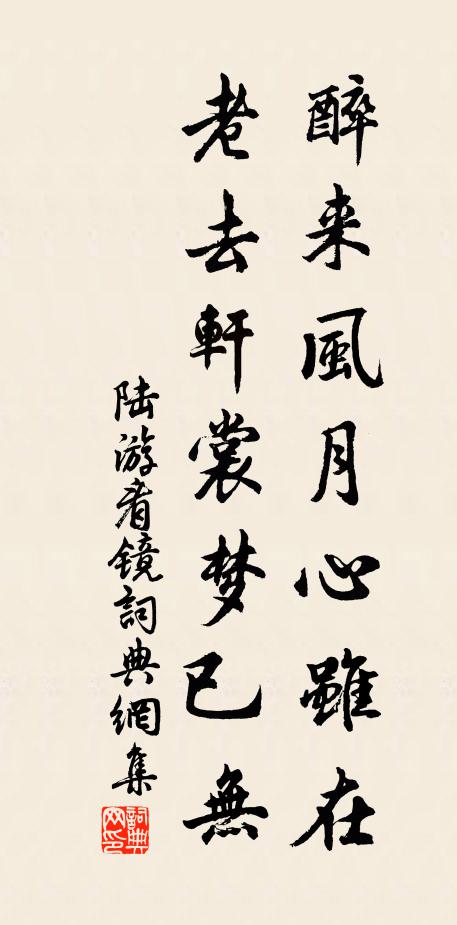 醉来風月心雖在
老去軒裳梦已無
陆游看镜詞典網集
詞典网印